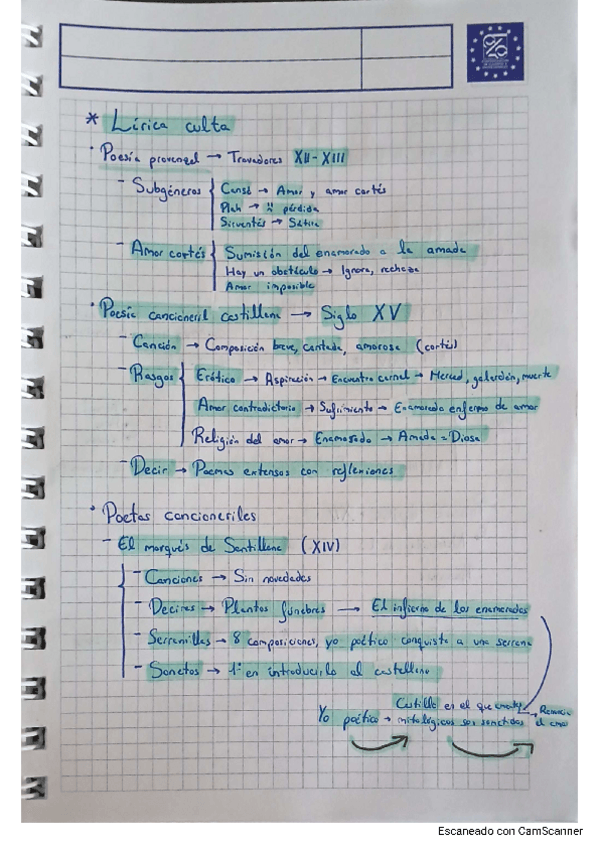 * Lírica culta
· Poesía provenzal → Trovadores XII-XIII
- Subgéneros { Cansó → Amor y amor cortés
Planh → " pérdida
Sirventés → Sátira
- Amor cortés { Sumisión del enamorado a la amada
Hay un obstáculo → Ignora, rechaza
Amor imposible
· Poesía cancioneril castellana → Siglo XV
- Canción → Composición breve, cantada, amorosa (cortés)
- Rasgos { Erótico → Aspiración → Encuentro carnal → Merced, galardón, muerte
Amor contradictorio → Sufrimiento → Enamorado enfermo de amor
Religión del amor → Enamorado → Amada = Diosa
- Decir → Poemas extensos con reflexiones
· Poetas cancioneriles
- El marqués de Santillana (XIV)
- Canciones → Sin novedades
- Decires → Plantos fúnebres → El infierno de los enamorados
- Serranillas → 8 composiciones, yo poético conquista a una serrana
- Sonetos → 1º en introducirlo al castellano
Castillo en el que
Yo poético → mitológicos son → el amor
Escaneado con CamScanner